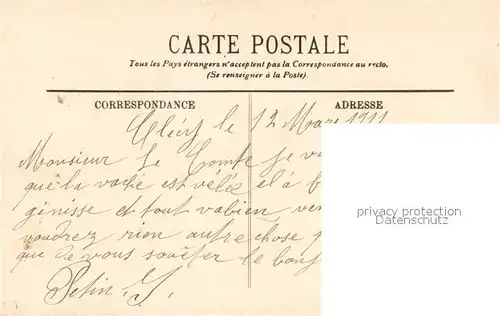 CARTE POSTALE
Tous les Pays étrangers n'acceptent pas la Correspondance au recto.
(Se renseigner à la Poste).
CORRESPONDANCE
ADRESSE
le 12 Mars 1911
Monsieur Le Comte Je v
que la vache est vélée el à
génisse et tout va bien
voudrez rien autre chose
que de vous souéter le bonj
privacy protection
Datenschutz